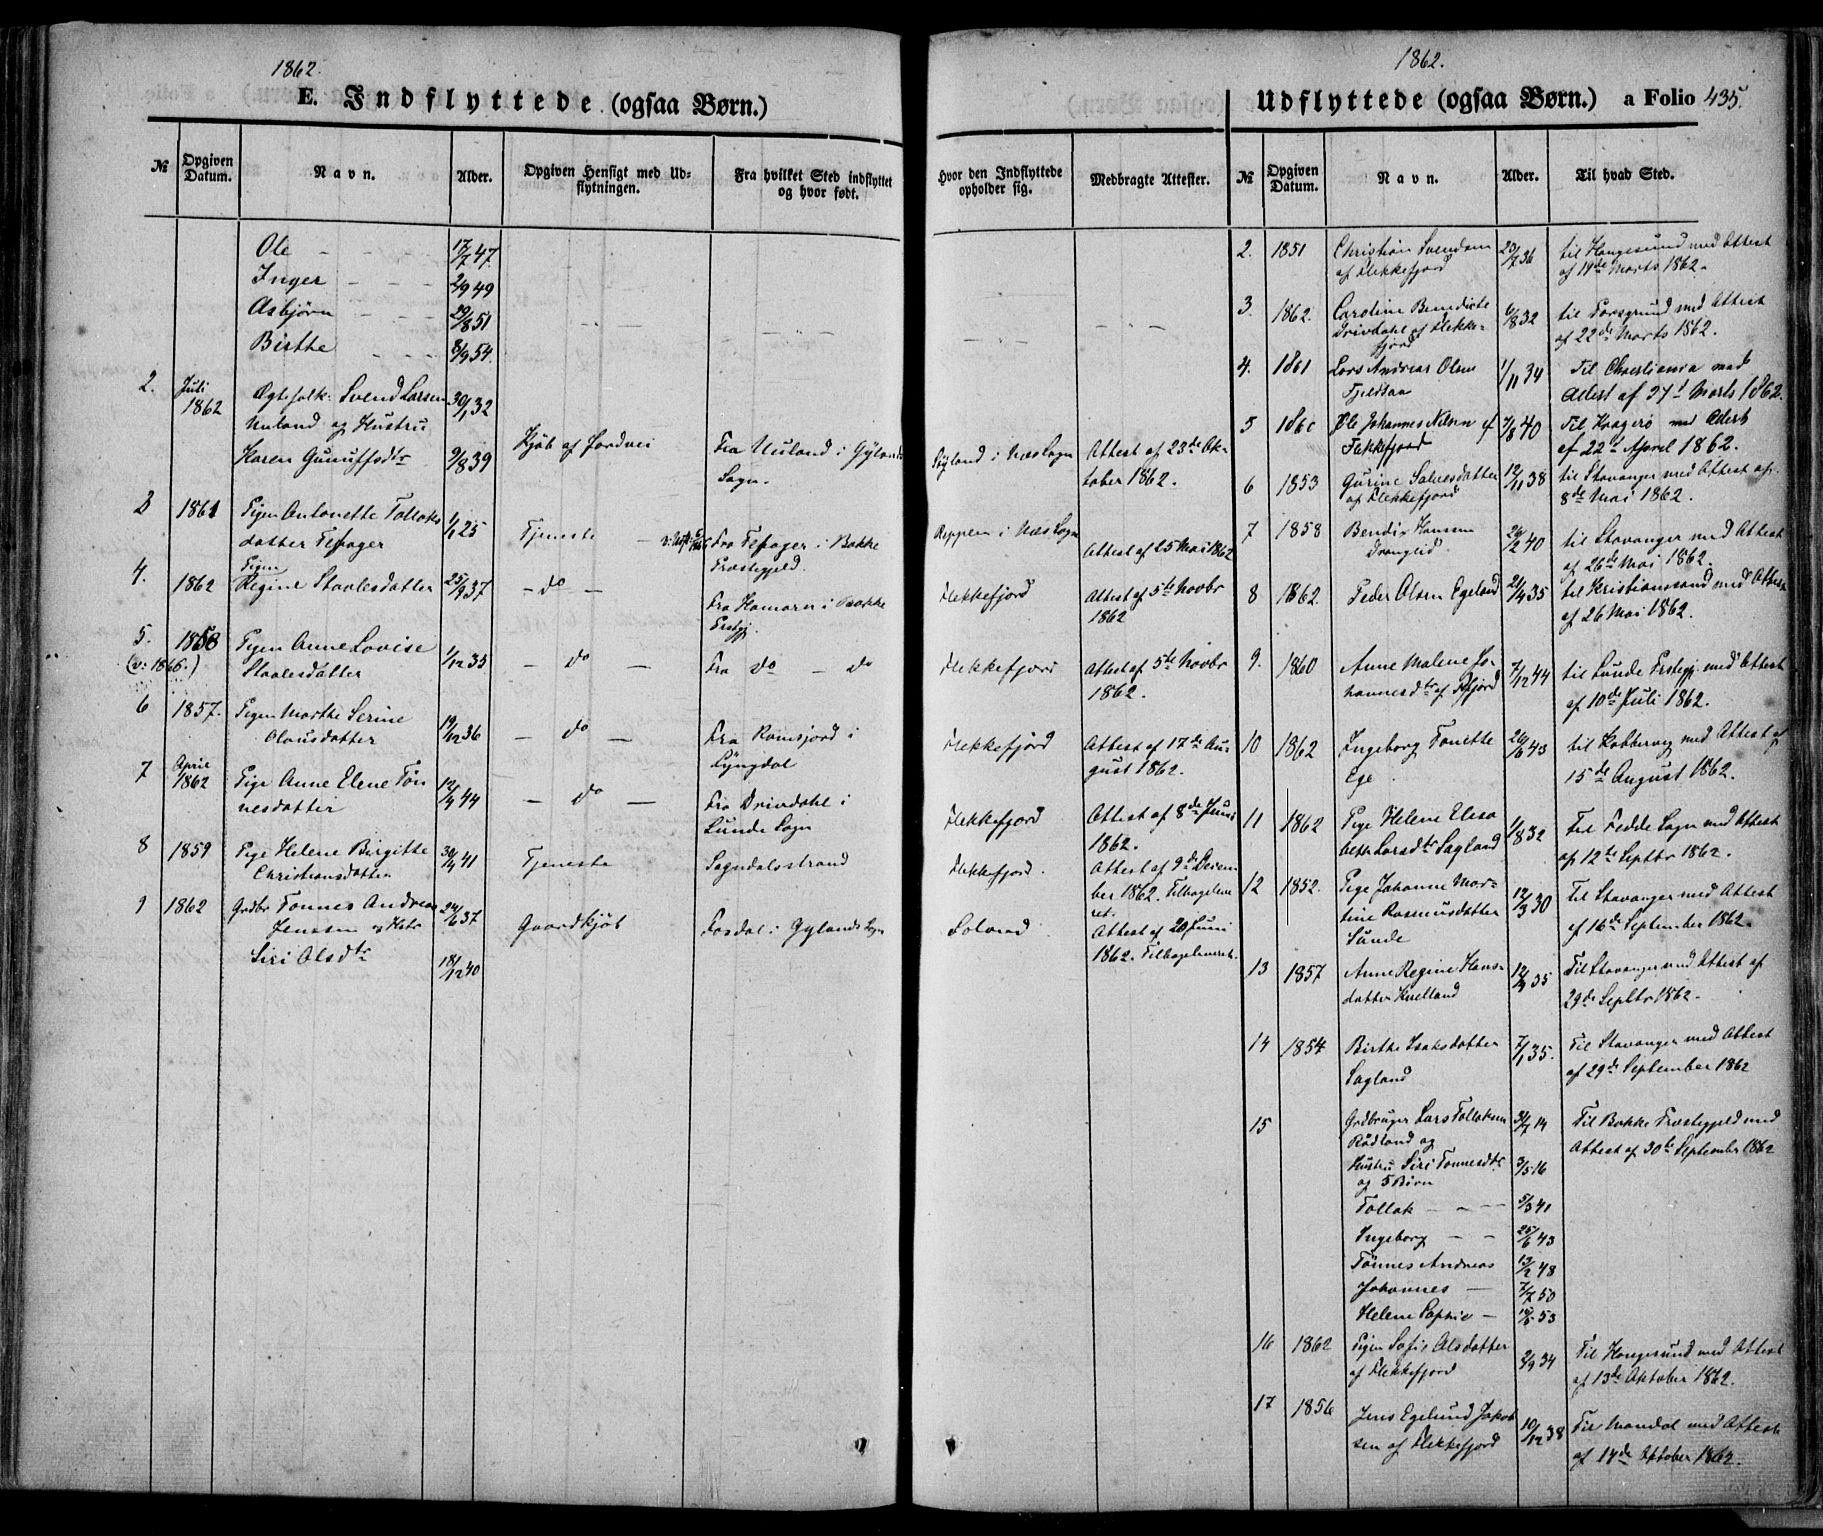 1862.
E. Indflyttede (ogsaa Børn.)
№
Opgiven Datum.
Navn.
Alder.
Opgiven Hensigt med Udflytningen.
Fra hvilket Sted indflyttet og hvor født.
Ole — — — 17/7 47.
Inger — — — 2/9 49
Asbjørn — — — 29/8 51
Birthe — — — 8/9 54.
2. Juli Ægtefolk: Svend Larsen 30/1 32
1862 Nuland og Hustru
Karen Gunulfsdtr 9/8 39 Kjøb af Jordvei Fra Nuland i Gylands
Sogn.
3 1861 Pigen Antonette Tollaks 1/1 25 Tjeneste
datter Fra i Bakke
Præstegjeld.
4. Pigen
1862 Regine Staalesdatter 25/9 37 — do — Fra Hamarn i Bakke
Præstgj.
5. 1858 Pigen Anne Lovise 1/12 35 — do — Fra do — do
(v: 1866.) Staalesdatter
6 1857. Pigen Marthe Serine 19/12 36 — do — Fra i
Olausdatter Lyngdal
7 April
1862 Pige Anne Elene Tøn 12/4 44 — do — Fra Drivdahl i
nesdatter Lunde Sogn
8 1859 Pige Helene Birgitte 30/4 41 Tjeneste Sogndalsstrand
Christiansdatter
9 1862 Grdbr Tønnes Andreas 24/6 37 Gaardkjøb i Gylands Sogn
Jenssen og Hstr
Siri Olsdtr 18/12 40
1862.
Udflyttede (ogsaa Børn.) a Folio 435.
Hvor den Indflyttede opholder sig.
Medbragte Attester.
№
Opgiven Datum.
Navn.
Alder.
Til hvad Sted.
Gyland i Næs Sogn Attest af 23de Ok-
tober 1862.
i Næs Sogn
Attest af 25 Mai 1862
Flekkefjord Attest af 5te Novbr
1862
Flekkefjord Attest af 5te Novbr
1862.
Flekkefjord Attest af 17de Au-
gust 1862.
Flekkefjord Attest af 8de Juni
1862.
Flekkefjord. Attest af 9de Decem
ber 1862. Tilbageleve
ret.
Attest af 20 Juni
1862. Tilbageleveret.
2. 1851 Christian Svendsen 23/7 36 til Haugesund med Attest
af Flekkefjord af 19de Marts 1862.
3. 1862. Caroline Bendicte 6/8 32 til Porsgrund med Attest
Drivdahl af Flekke- af 22de Marts 1862.
fjord
4. 1861 Lars Andreas Olsen 1/11 34 Til Christiania med
Fjeldsaa Attest af 27d Marts 1862.
5 1860 Ole Johannes Nilsen af 7/8 40 Til Kragerø med Attest
Flekkefjord af 22d April 1862.
6 1853 Gurine Salvesdatter 12/11 38 til Stavanger med Attest af
af Flekkefjord 8de Mai 1862.
7 1858 Bendix Hansen 26/2 40 til Stavanger med Attest
Drangeid. af 26de Mai 1862.
8 1862. Peder Olsen Egeland 21/4 35 til Kristiansand med Attest
af 26 Mai 1862.
9. 1860 Anne Malene Jo- 7/12 44 til Lunde Prstegj. med Attest
hannesdtr af Ffjord af 10de Juli 1862.
10 1862 Ingeborg Tonette 24/9 43 til Kobbervig med Attest af
Ege 15de August 1862.
11 1862 Pige Helene Elisa 1/8 32 Til Fedde Sogn med Attest
beth Larsdtr Sagland af 12te Septbr 1862.
12 1852. Pige Johanne Mar- 12/3 30 Til Stavanger med Attest
tine Rasmusdatter af 16de September 1862.
Sunde
13 1857 Anne Regine Hans- 12/9 35 Til Stavanger med Attest af
datter 29de Septbr 1862.
14 1854 Birthe Isaksdatter 7/1 35. Til Stavanger med Attest
Sagland af 29de September 1862
15 Grdbruger Lars Tollaksen 31/7 14 Til Bakke Præstegjeld med
Rådland og Attest af 30te September 1862
Hustru Siri Tønnesdtr 3/5 16
og 5 Børn
Tollak — — — 5/3 41
Ingeborg — — 25/6 43
Tønnes Andreas 13/2 48
Johannes — 7/7 50
Helene Sophie — 53
16 1862 Pigen Sofie Olsdatter 2/9 34 Til Haugesund med Attest
af Flekkefjord af 13de Oktober 1862.
17 1856 Jens Egelund Jakob 10/12 38 Til Mandal med Attest
sen af Flekkefjord af 14de Oktober 1862.